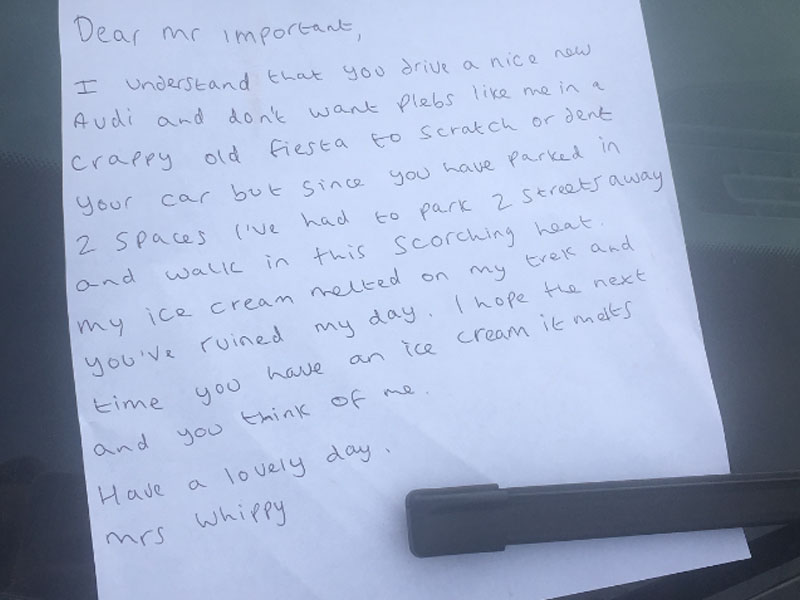 Dear Mr important,
I understand that you drive a nice new
Audi and don't want Plebs like me in a
crappy old fiesta to scratch or dent
your car but since you have parked in
2 spaces I've had to park 2 streets away
and walk in this scorching heat.
my ice cream melted on my trek and
you've ruined my day. I hope the next
time you have an ice cream it melts
and you think of me.
Have a lovely day.
Mrs Whippy